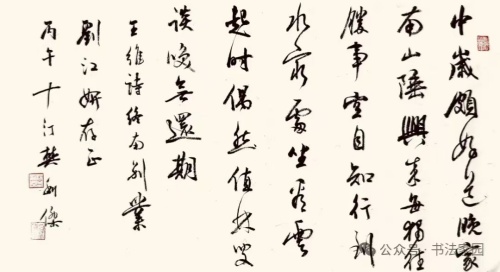 中歲頗好道晚家
南山陲興来每獨往
勝事空自知行到
水窮處坐看雲
起时偶然值林叟
談咲無還期
王維詩終南别業
劉江妍存正
丙午十
公众号 · 书法家园